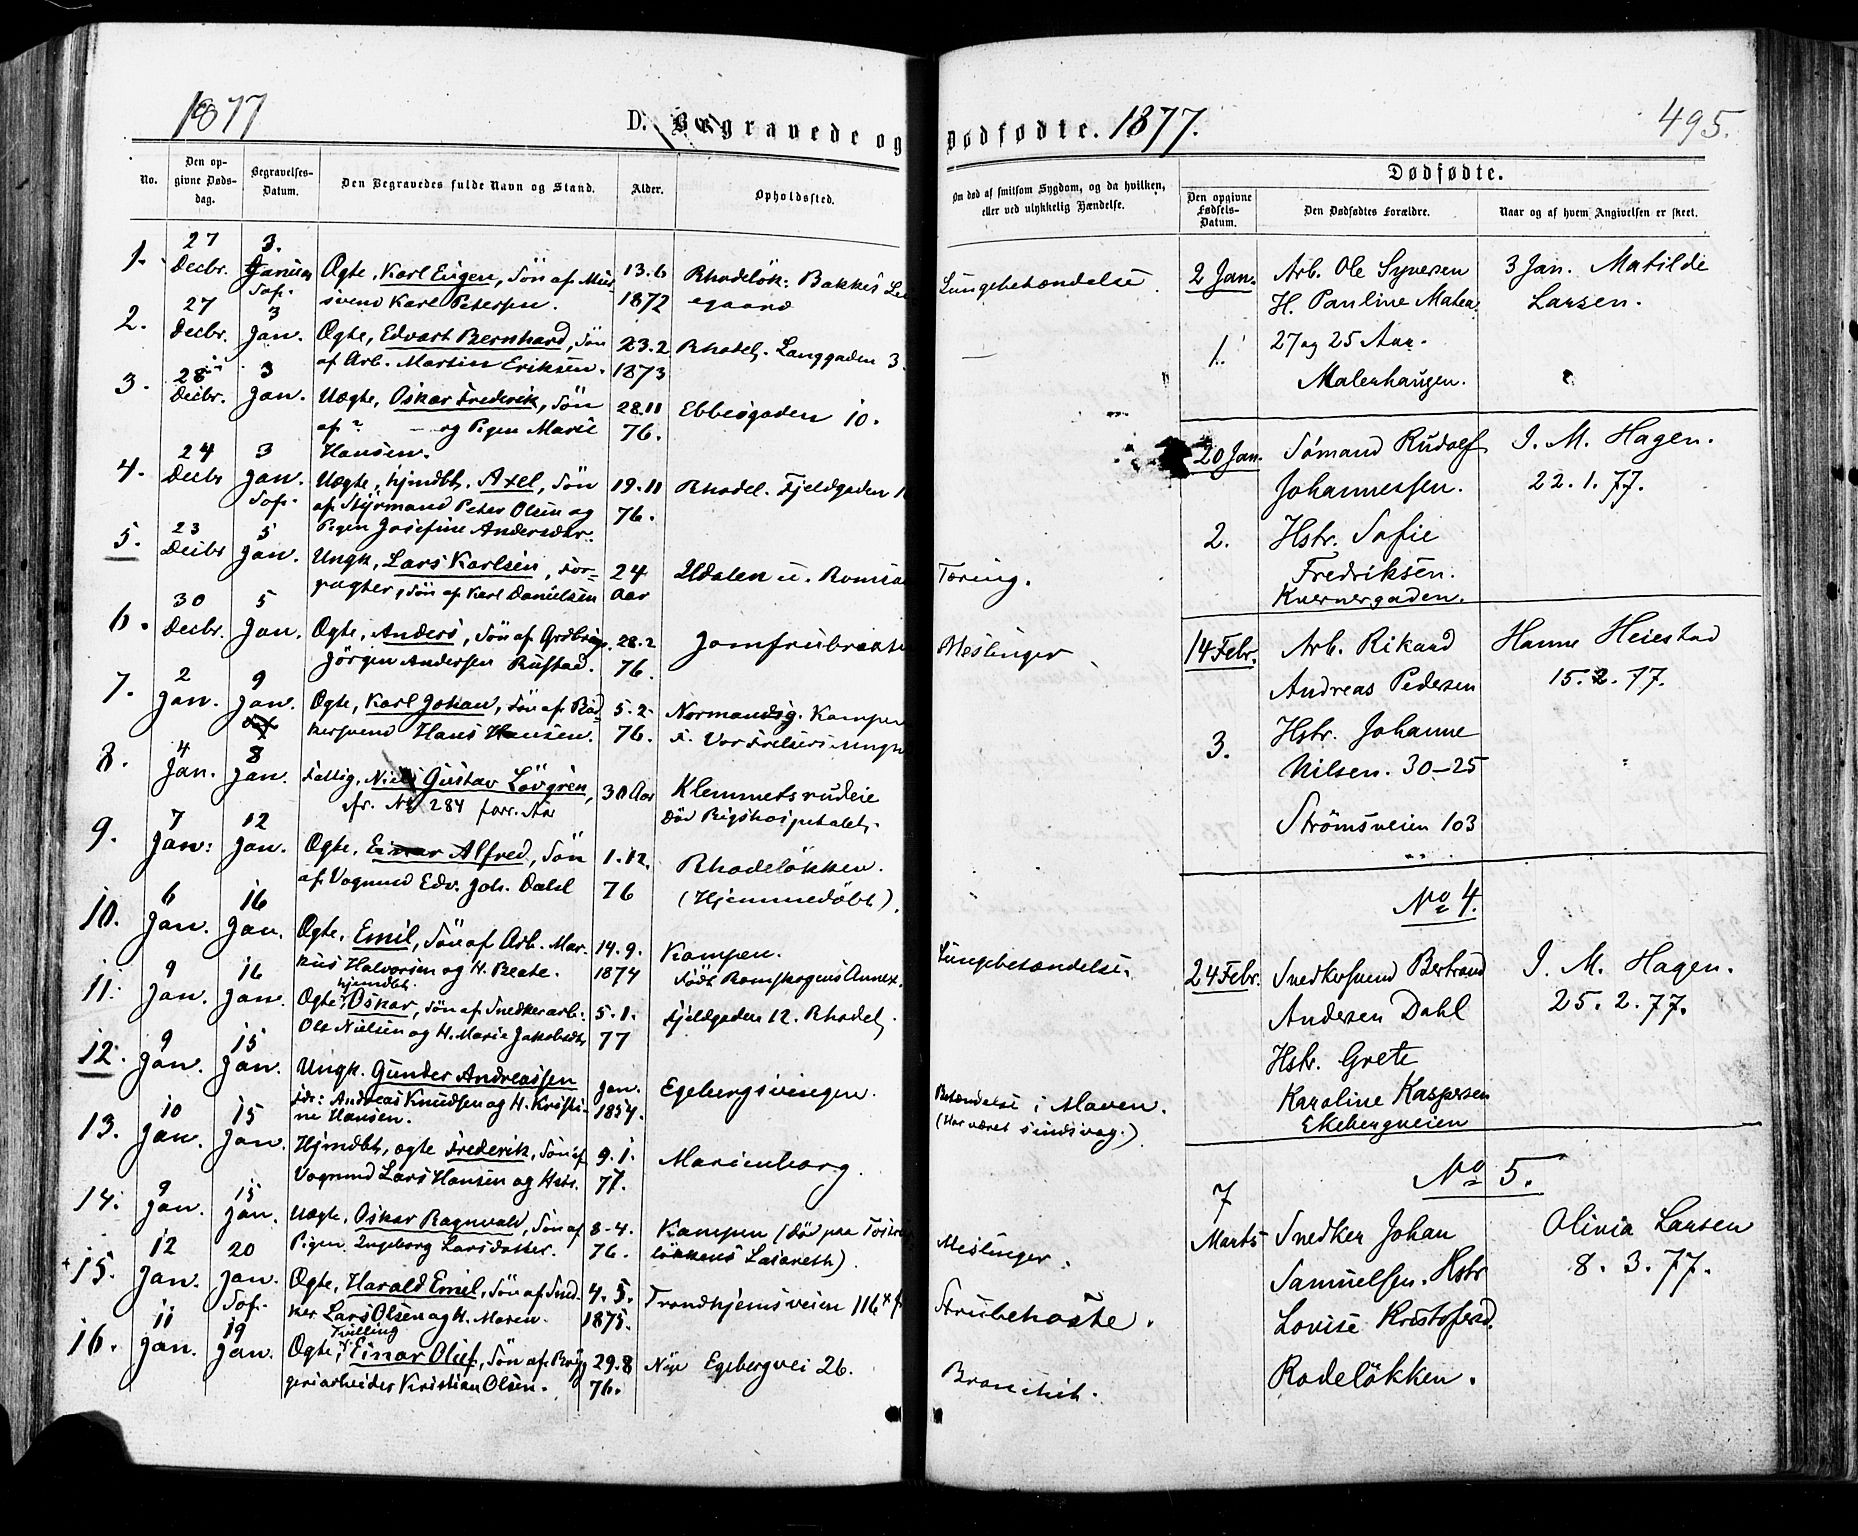 1877
D. Begravede og
No.
Den op-
givne Døds-
dag.
Begravelses-
Datum.
Den Begravedes fulde Navn og Stand.
Alder.
Opholdssted.
1. 27 Decbr. 3. Januar Sof. Ægte, Karl Eugen, Søn af Mur- 13.6
svend Karl Petersen. 1872
Rhodeløk. Bakkes
egaard
2. 27 Decbr. 3 Jan. Ægte, Edvart Bernhard, Søn 23.2 Rhodel. Langgaden 3.
af Arb. Martin Eriksen. 1873
3. 28 Decbr. 3 Jan. Uægte, Oskar Frederik, Søn 28.11 Ebbesgaden 10.
af ? — og Pigen Marie 76.
Hansen.
4. 24 Decbr 3 Jan. Sof. Uægte, hjmdbt, Axel, Søn 19.11 Rhodel. Fjeldgaden
af Styrmand Peter Olsen og 76.
Pigen Josefine Andersdtr.
5. 23 Decbr 5 Jan. Ungk, Lars Karlsen, For- 24 Udalen u.
pagter, Søn af Karl Danielsen Aar
6. 30 Decbr. 5 Jan. Ægte, Anders, Søn af 28.2 Jomfrubraaten
Jörgen Andersen Rustad. 76.
7. 2 Jan. 9 Jan. Ægte, Karl Johan, Søn af Bød- 5.2 Normandsg. Kampen
kersvend Hans Hansen. 76. F. Vor Frelsers
8. 4 Jan. 8 Jan. Fattig, Niels Gustav Lövgren, 30 Aar Klemmetsrudeie
fr. No 284 forr. Aar Död Rigshospitalet.
9. 7 Jan. 12 Jan. Ægte, Einar Alfred, Søn 1.12. Rhodelökken.
af Vognmd Edv. Joh. Dahl 76 (Hjemmedöbt).
10. 6 Jan. 16 Jan. Ægte, Emil, Søn af Arb. Mar- 14.9. Kampen.
kus Halvorsen og H. Beate. 1874 Födt Romskogens Annex.
11. 9 Jan. 16 Jan. hjemdbt.
Ægte, Oskar, Søn af Snedkerarb. 5.1. Fjeldgaden 12. Rhodel.
Ole Nielsen og H. Marie Jakobsdtr 77
12. 9 Jan. 15 Jan. Ungk. Gunder Andreassen Jan. Egebergsvingen.
For: Andreas Knudsen og H. Kristi- 1857.
ne Hansen.
13. 10 Jan. 15 Jan. Hjmdbt, ægte Frederik, Søn af 9.1. Marienborg.
Vognmd Lars Hansen og Hstr. 77.
14. 9 Jan. 15 Jan. Uægte, Oskar Ragnvald, Søn af 8-4. Kampen (död paa
Pigen Ingeborg Larsdatter. 76. lökkens Lasareth).
15. 12 Jan. 20 Jan. Sof. Ægte, Harald Emil, Søn af Sned- 4.5. Trondhjemsveien 116
ker Lars Olsen og H. Maren. 1875.
16. 11 Jan. 19 Jan. Tvilling
Ægte, Einar Oluf, Søn af Bryg- 29.8 Nye Egebergvei 26.
geriarbeider Kristian Olsen. 76.
Dødfødte. 1877.
495.
Om død af smitsom Sygdom, og da hvilken,
eller ved ulykkelig Hændelse.
Dødfødte.
Den opgivne
Fødsels-
Datum.
Den Dødfødtes Forældre.
Naar og af hvem Angivelsen er skeet.
Lungebetændelse.
—
Tæring.
Meslinger
Lungebetændelse
Betændelse i Maven.
(Har været sindsvag.)
Meslinger.
Strubehoste.
Bronchit.
2 Jan. Arb. Ole Syversen 3 Jan. Matilde
H. Pauline Larsen.
1. 27 og 25 Aar.
Malerhaugen.
20 Jan. Sømand Rudolf I. M. Hagen.
Johannessen. 22.1.77.
2. Hstr. Sofie
Fredriksen.
Kværnergaden.
14 Febr. Arb. Rikard Hanne Heiestad
Andreas Pedersen 15.2.77.
3. Hstr. Johanne
Nilsen. 30-25
Strömsveien 103
No 4.
24 Febr. Snedkersvend Bertrand I. M. Hagen.
Andersen Dahl 25.2.77.
Hstr. Grete
Karoline Kaspersen
Ekebergveien
No 5.
7 Marts Snedker Johan Olivia Larsen
Samuelsen. Hstr 8.3.77.
Lovise Kristofersd.
Rodelökken.